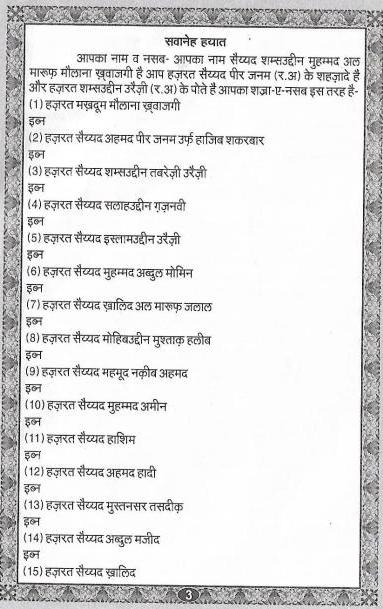 सवानेह हयात
आपका नाम व नसब- आपका नाम सैय्यद शम्सउद्दीन मुहम्मद अल
मारूफ़ मौलाना ख़्वाजगी है आप हज़रत सैय्यद पीर जनम (र.अ) के शहज़ादे है
और हज़रत शम्सउद्दीन उरैज़ी (र.अ) के पोते है आपका शज्रा-ए-नसब इस तरह है-
(1) हज़रत मख़्दूम मौलाना ख़्वाजगी
इब्न
(2) हज़रत सैय्यद अहमद पीर जनम उर्फ़ हाजिब शकरबार
इब्न
(3) हज़रत सैय्यद शम्सउद्दीन तबरेज़ी उरैज़ी
इब्न
(4) हज़रत सैय्यद सलाहउद्दीन ग़ज़नवी
इब्न
(5) हज़रत सैय्यद इस्लामउद्दीन उरैज़ी
इब्न
(6) हज़रत सैय्यद मुहम्मद अब्दुल मोमिन
इब्न
(7) हज़रत सैय्यद ख़ालिद अल मारूफ़ जलाल
इब्न
(8) हज़रत सैय्यद मोहिबउद्दीन मुश्ताक़ हलीब
इब्न
(9) हज़रत सैय्यद महमूद नक़ीब अहमद
इब्न
(10) हज़रत सैय्यद मुहम्मद अमीन
इब्न
(11) हज़रत सैय्यद हाशिम
इब्न
(12) हज़रत सैय्यद अहमद हादी
इब्न
(13) हज़रत सैय्यद मुस्तनसर तसदीक़
इब्न
(14) हज़रत सैय्यद अब्दुल मजीद
इब्न
(15) हज़रत सैय्यद ख़ालिद
3